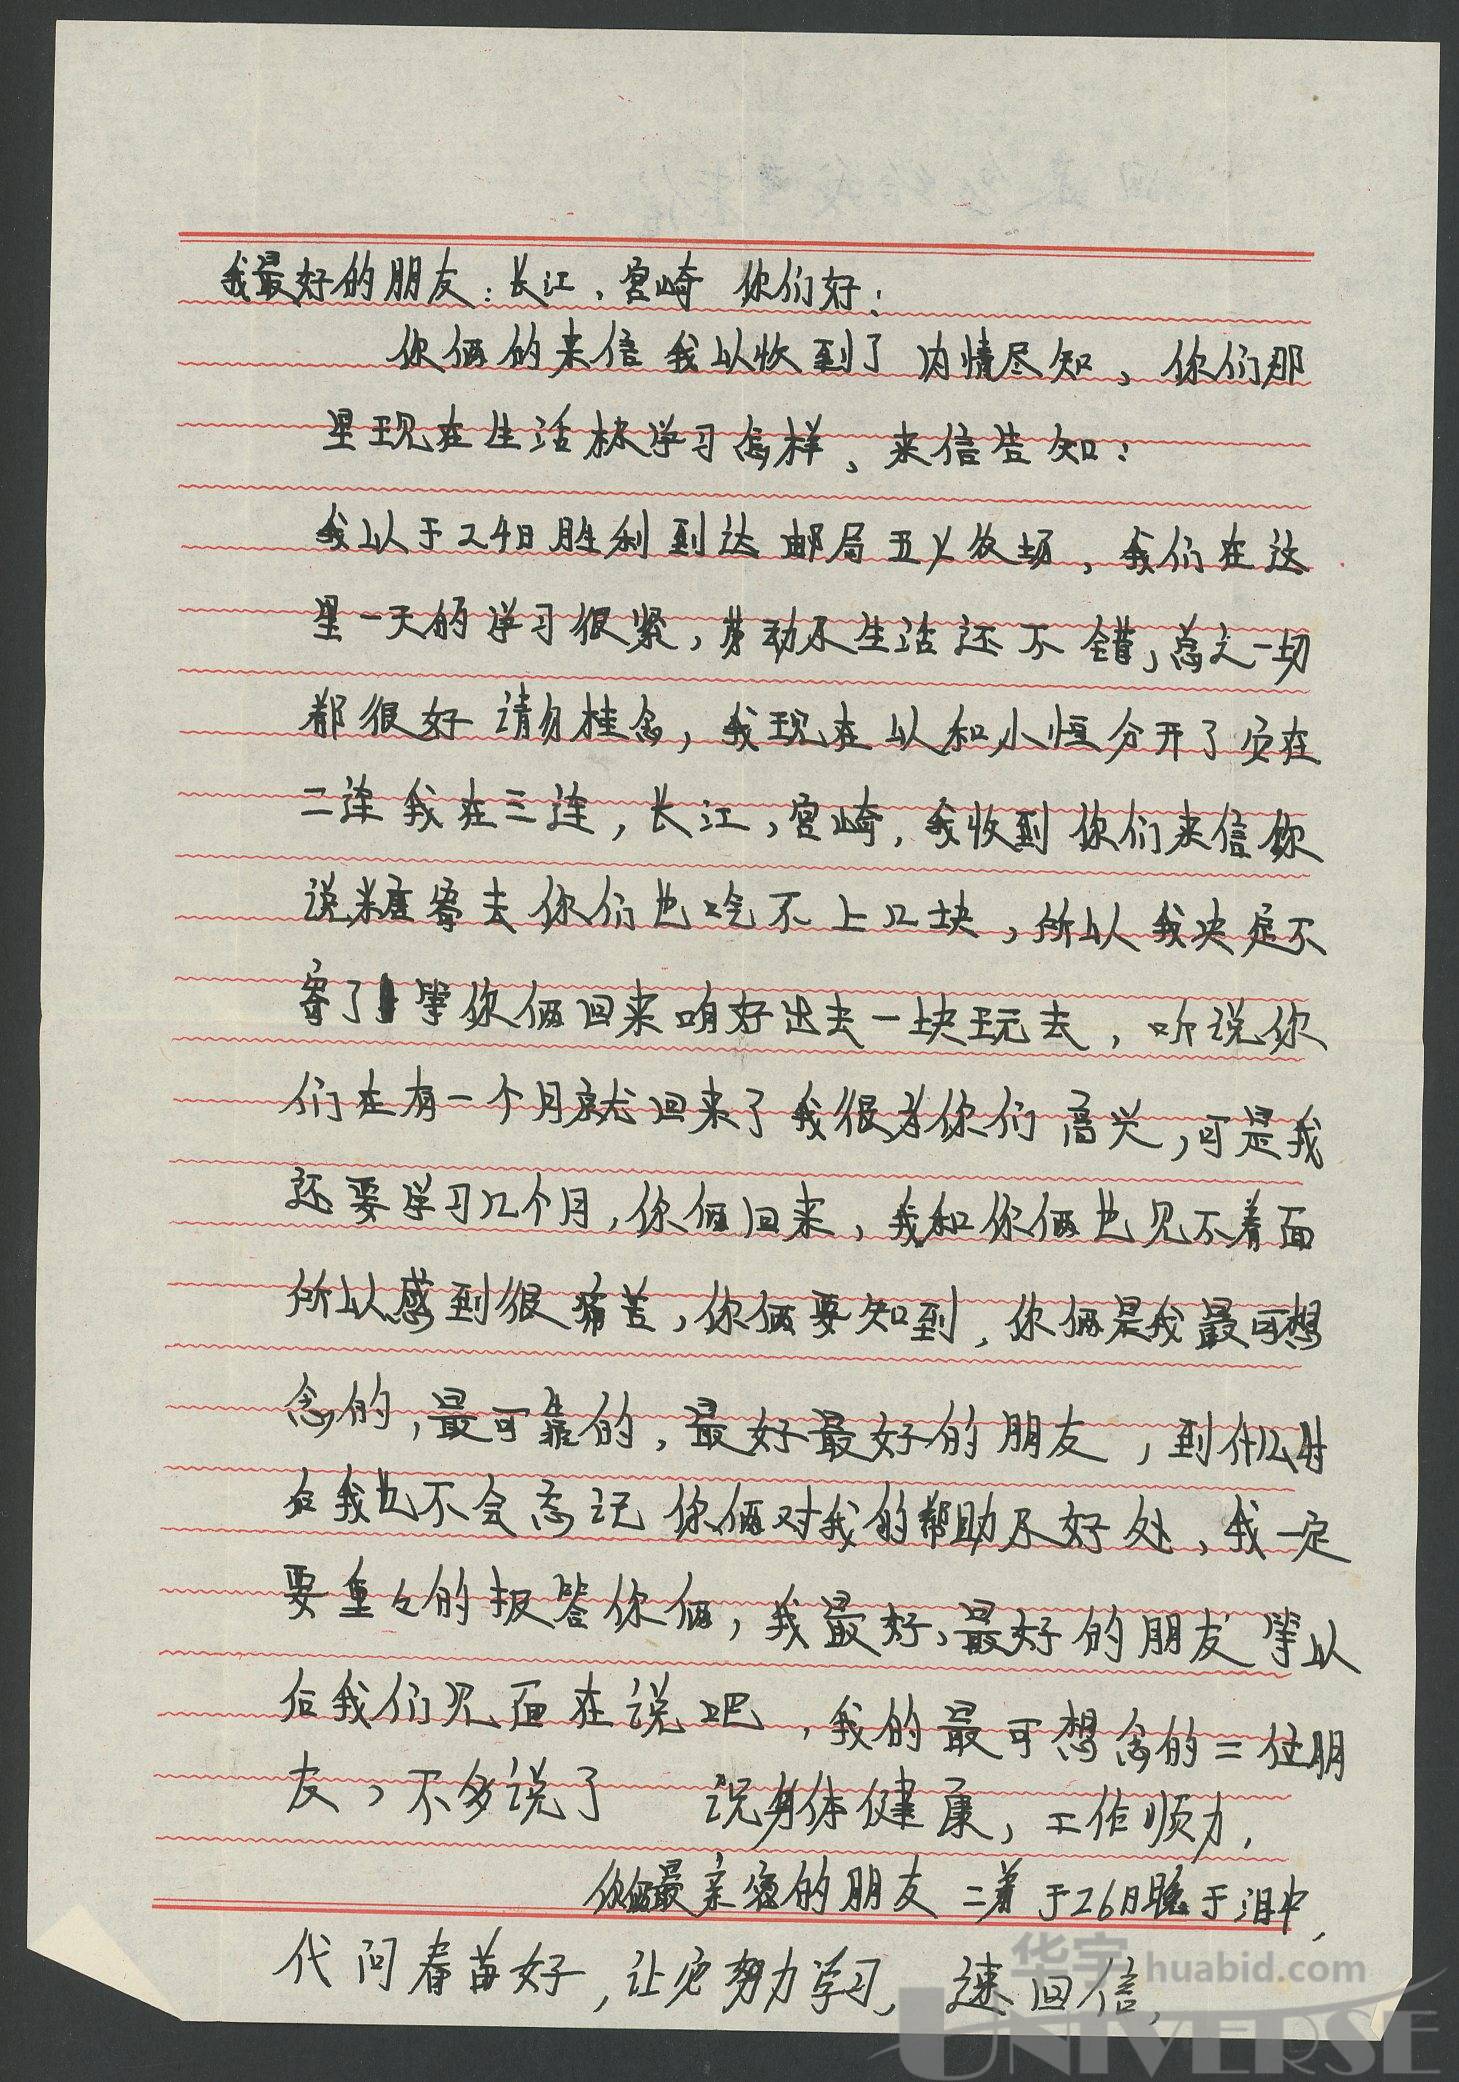 我最好的朋友：长江、宫崎 你们好：
你俩的来信我以收到了内情尽知、你们那
里现在生活和学习怎样、来信告知：
我以于24日胜利到达邮局五义农场，我们在这
里一天的学习很紧，劳动和生活还不错，总之一切
都很好请勿挂念，我现在以和小恒分开了 在
二连我在三连，长江，宫崎，我收到你们来信你
说糖寄去你们也吃不上几块，所以我决定不
寄了 等你俩回来咱好出去一块玩去，听说你
们在有一个月就回来了我很为你们高兴，可是我
还要学习几个月，你俩回来，我和你俩也见不着面
所以感到很痛苦，你俩要知到，你俩是我最可想
念的，最可靠的，最好最好的朋友，到什么时
后我也不会忘记你俩对我的帮助和好处，我一定
要重々的报答你俩，我最好、最好的朋友等以
后我们见面在说吧，我的最可想念的二位朋
友，不多说了 祝身体健康，工作顺力，
你俩最亲密的朋友 二 于26日晚于泪中，
代问春苗好，让 努力学习，速回信，
华宇 huabid.com
UNIVERSE